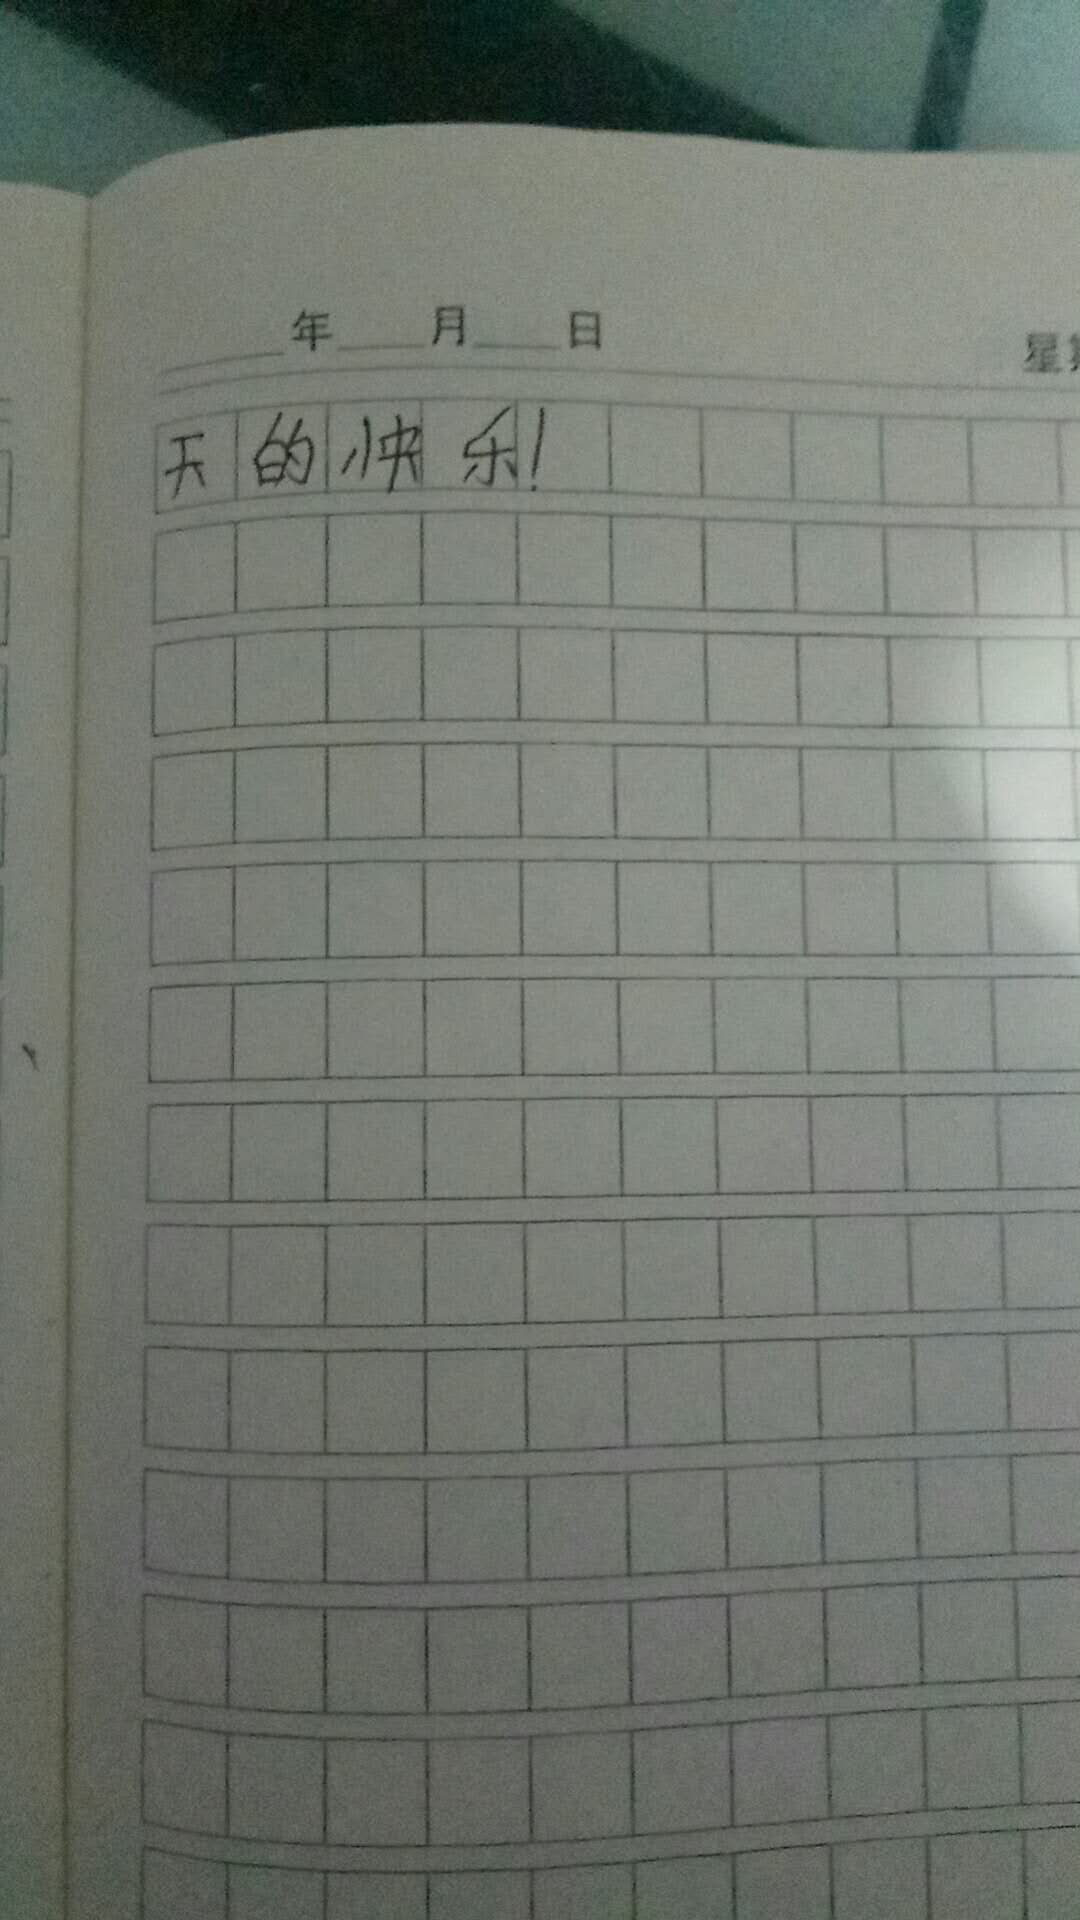 年 月 日 星期
天的快乐!